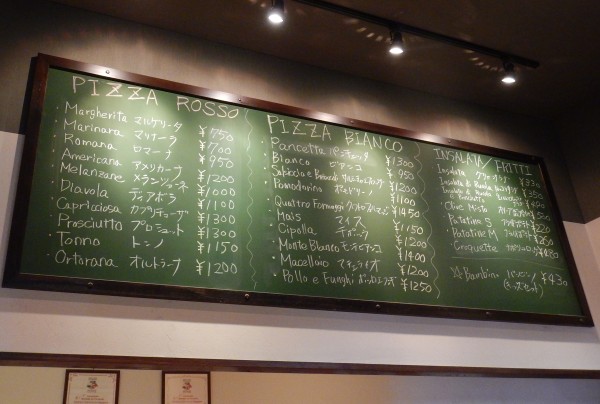 PIZZA ROSSO
Margherita マルゲリータ ¥750
Marinara マリナーラ ¥700
Romana ロマーナ ¥950
Americana アメリカーナ ¥1200
Melanzane メランツァーネ ¥1000
Diavola ディアボラ ¥1100
Capricciosa カプリチョーザ ¥1300
Prosciutto プロシュット ¥1300
Tonno トンノ ¥1150
Ortorana オルトラーナ ¥1200
PIZZA BIANCO
Pancetta パンチェッタ ¥1300
Bianco ビアンコ ¥950
Salsiccia e Broccoli ¥1200
Pomodorino ポモドリーノ ¥1100
Quattro Formaggi クアトロフォルマッジ ¥1450
Mais マイス ¥1150
Cipolla チポッラ ¥1200
Monte Bianco モンテビアンコ ¥1400
Macellaio マチェライオ ¥1200
Pollo e Funghi ポッロエフンギ ¥1250
INSALATA FRITTI
Insalata
Insalata di Rucola
Insalata di Rucola
Chef Misto
Patatine S
Patatine M
Croquette
☆Bambino バンビーノ ¥430
(キッズセット)